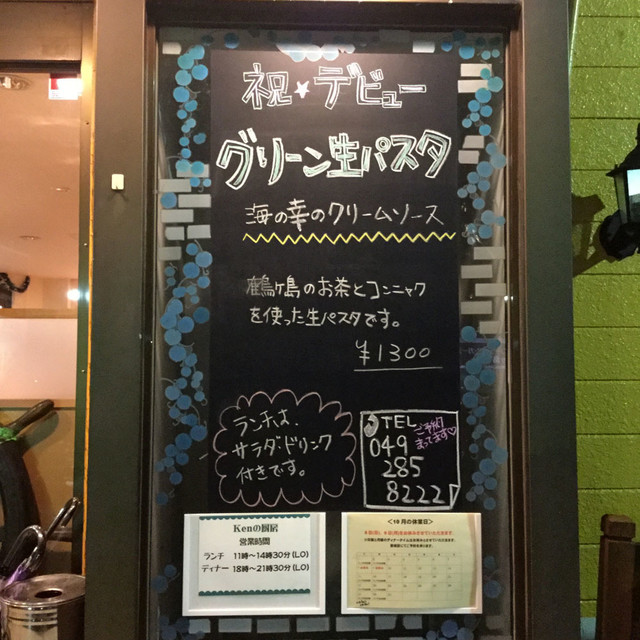 祝★デビュー
グリーン生パスタ
海の幸のクリームソース
鶴ヶ島のお茶とコンニャク
を使った生パスタです。
¥1300
ランチは、
サラダ・ドリンク
付きです。
TEL
049
285
8222
ご予約
まってます♡
Kenの厨房
営業時間
ランチ 11時〜14時30分(LO)
ディナー 18時〜21時30分(LO)
<10月の休業日>